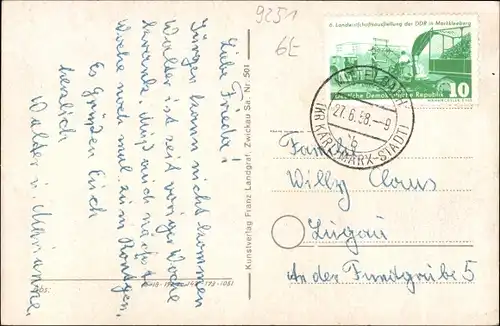 9251
6E
Liebe Frieda!
Jürgen kann nicht kommen
Walter ist seit voriger Woche
krank. Muß auch nächste
Woche noch mal zum Röntgen.
Es Grüßen Euch
herzlich
Walter u. Marianne.
Kunstverlag Franz Landgraf, Zwickau Sa. Nr. 501
6. Landwirtschaftsausstellung der DDR in Markkleeberg
Deutsche Demokratische Republik
10
27.6.58.-9
(BZ. KARL-MARX-STADT)
b
Familie
Willy Claus
Lugau
An der Fundgrube 5